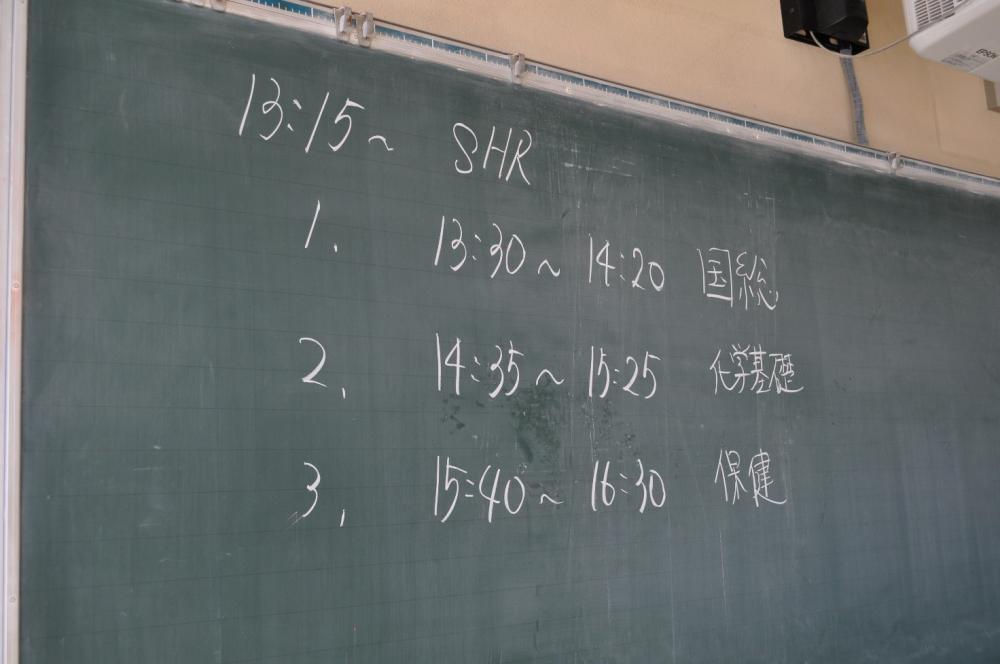 13:15~ SHR
1. 13:30~14:20 国総
2. 14:35~15:25 化学基礎
3. 15:40~16:30 保健
EPSON